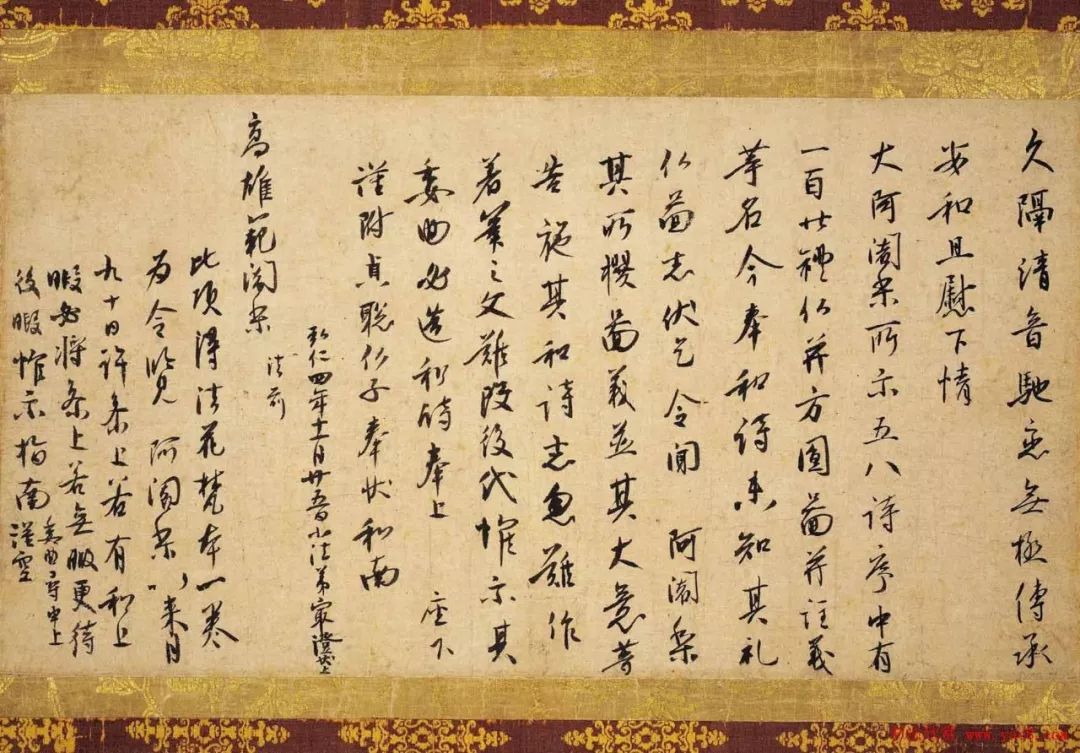 久隔清音馳恋無極傳承
安和且慰下情
大阿闍梨所示五八詩序中有
一百廿禮仏并方圓啚并註義
等名今奉和詩未知其礼
仏啚者伏乞令聞 阿闍梨
其所撰啚義並其大意等
告施其和詩者忽難作
著筆之文難改後代惟示其
委曲必造和詩奉上 座下
謹附貞聡仏子奉状和南
弘仁四年十一月廿五日小法弟最澄状上
高雄範闍梨
法前
此頃得法花梵本一巻
為令覧 阿闍梨以来月
九十日許参上若有和上
暇必将参上若無暇更待
後暇惟示指南
委曲尋申上
謹空